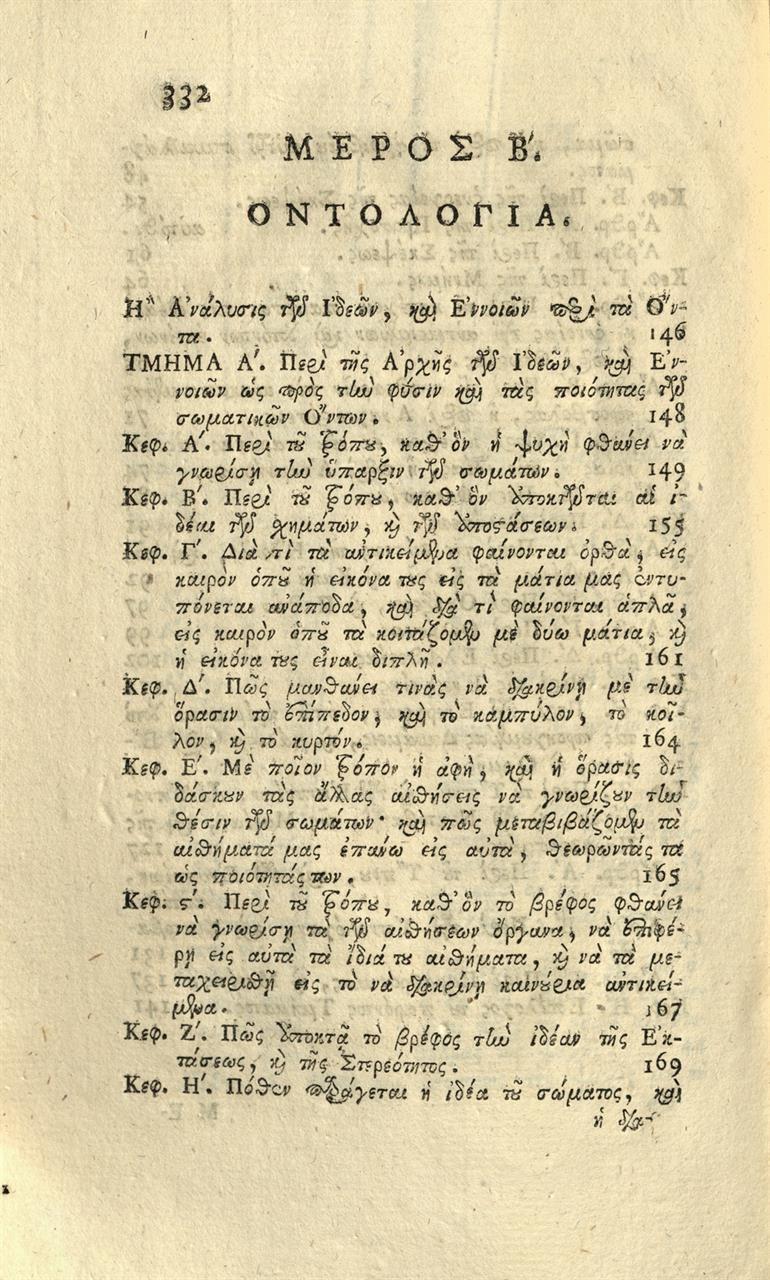 332
ΜΕΡΟΣ Β΄.
ΟΝΤΟΛΟΓΙΑ.
Ἡ Ἀνάλυσις τῶν Ἰδεῶν, καὶ Ἐννοιῶν περὶ τὰ Ὄν-
τα. 146
ΤΜΗΜΑ Α΄. Περὶ τῆς Ἀρχῆς τῶν Ἰδεῶν, καὶ Ἐν-
νοιῶν ὡς πρὸς τὴν φύσιν καὶ τὰς ποιότητας τῶν
σωματικῶν Ὄντων. 148
Κεφ. Α΄. Περὶ τοῦ τρόπου, καθ᾽ ὃν ἡ ψυχὴ φθάνει νὰ
γνωρίσῃ τὴν ὕπαρξιν τῶν σωμάτων. 149
Κεφ. Β΄. Περὶ τοῦ τρόπου, καθ᾽ ὃν ἀποκτῶνται αἱ ἰ-
δέαι τῶν χημάτων, καὶ τῶν ἀποστάσεων. 155
Κεφ. Γ΄. Διὰ τὶ τὰ ἀντικείμενα φαίνονται ὀρθὰ, εἰς
καιρὸν ὁποῦ ἡ εἰκόνα τους εἰς τὰ μάτια μας ἐντυ-
πόνεται ἀνάποδα, καὶ διὰ τὶ φαίνονται ἁπλᾶ,
εἰς καιρὸν ὁποῦ τὰ κοιτάζομεν μὲ δύω μάτια, καὶ
ἡ εἰκόνα τους εἶναι διπλῆ. 161
Κεφ. Δ΄. Πῶς μανθάνει τινὰς νὰ διακρίνῃ μὲ τὴν
ὅρασιν τὸ ἐπίπεδον, καὶ τὸ καμπύλον, τὸ κοῖ-
λον, καὶ τὸ κυρτόν. 164
Κεφ. Ε΄. Μὲ ποῖον τρόπον ἡ ἀφὴ, καὶ ἡ ὅρασις δι-
δάσκουν τὰς ἄλλας αἰσθήσεις νὰ γνωρίζουν τὴν
θέσιν τῶν σωμάτων· καὶ πῶς μεταβιβάζομεν τὰ
αἰσθήματά μας ἐπάνω εἰς αὐτὰ, θεωρῶντάς τα
ὡς ποιότητάς των. 165
Κεφ. ϛ΄. Περὶ τοῦ τρόπου, καθ᾽ ὃν τὸ βρέφος φθάνει
νὰ γνωρίσῃ τὰ τῶν αἰσθήσεων ὄργανα, νὰ ἐπιφέ-
ρῃ εἰς αὐτὰ τὰ ἴδιά του αἰσθήματα, καὶ νὰ τὰ με-
ταχειρισθῇ εἰς τὸ νὰ διακρίνῃ καινούρια ἀντικεί-
μενα. 167
Κεφ. Ζ΄. Πῶς ἀποκτᾷ τὸ βρέφος τὴν ἰδέαν τῆς Ἐκ-
τάσεως, καὶ τῆς Στερεότητος. 169
Κεφ. Η΄. Πόθεν παράγεται ἡ ἰδέα τοῦ σώματος, καὶ
ἡ δια-